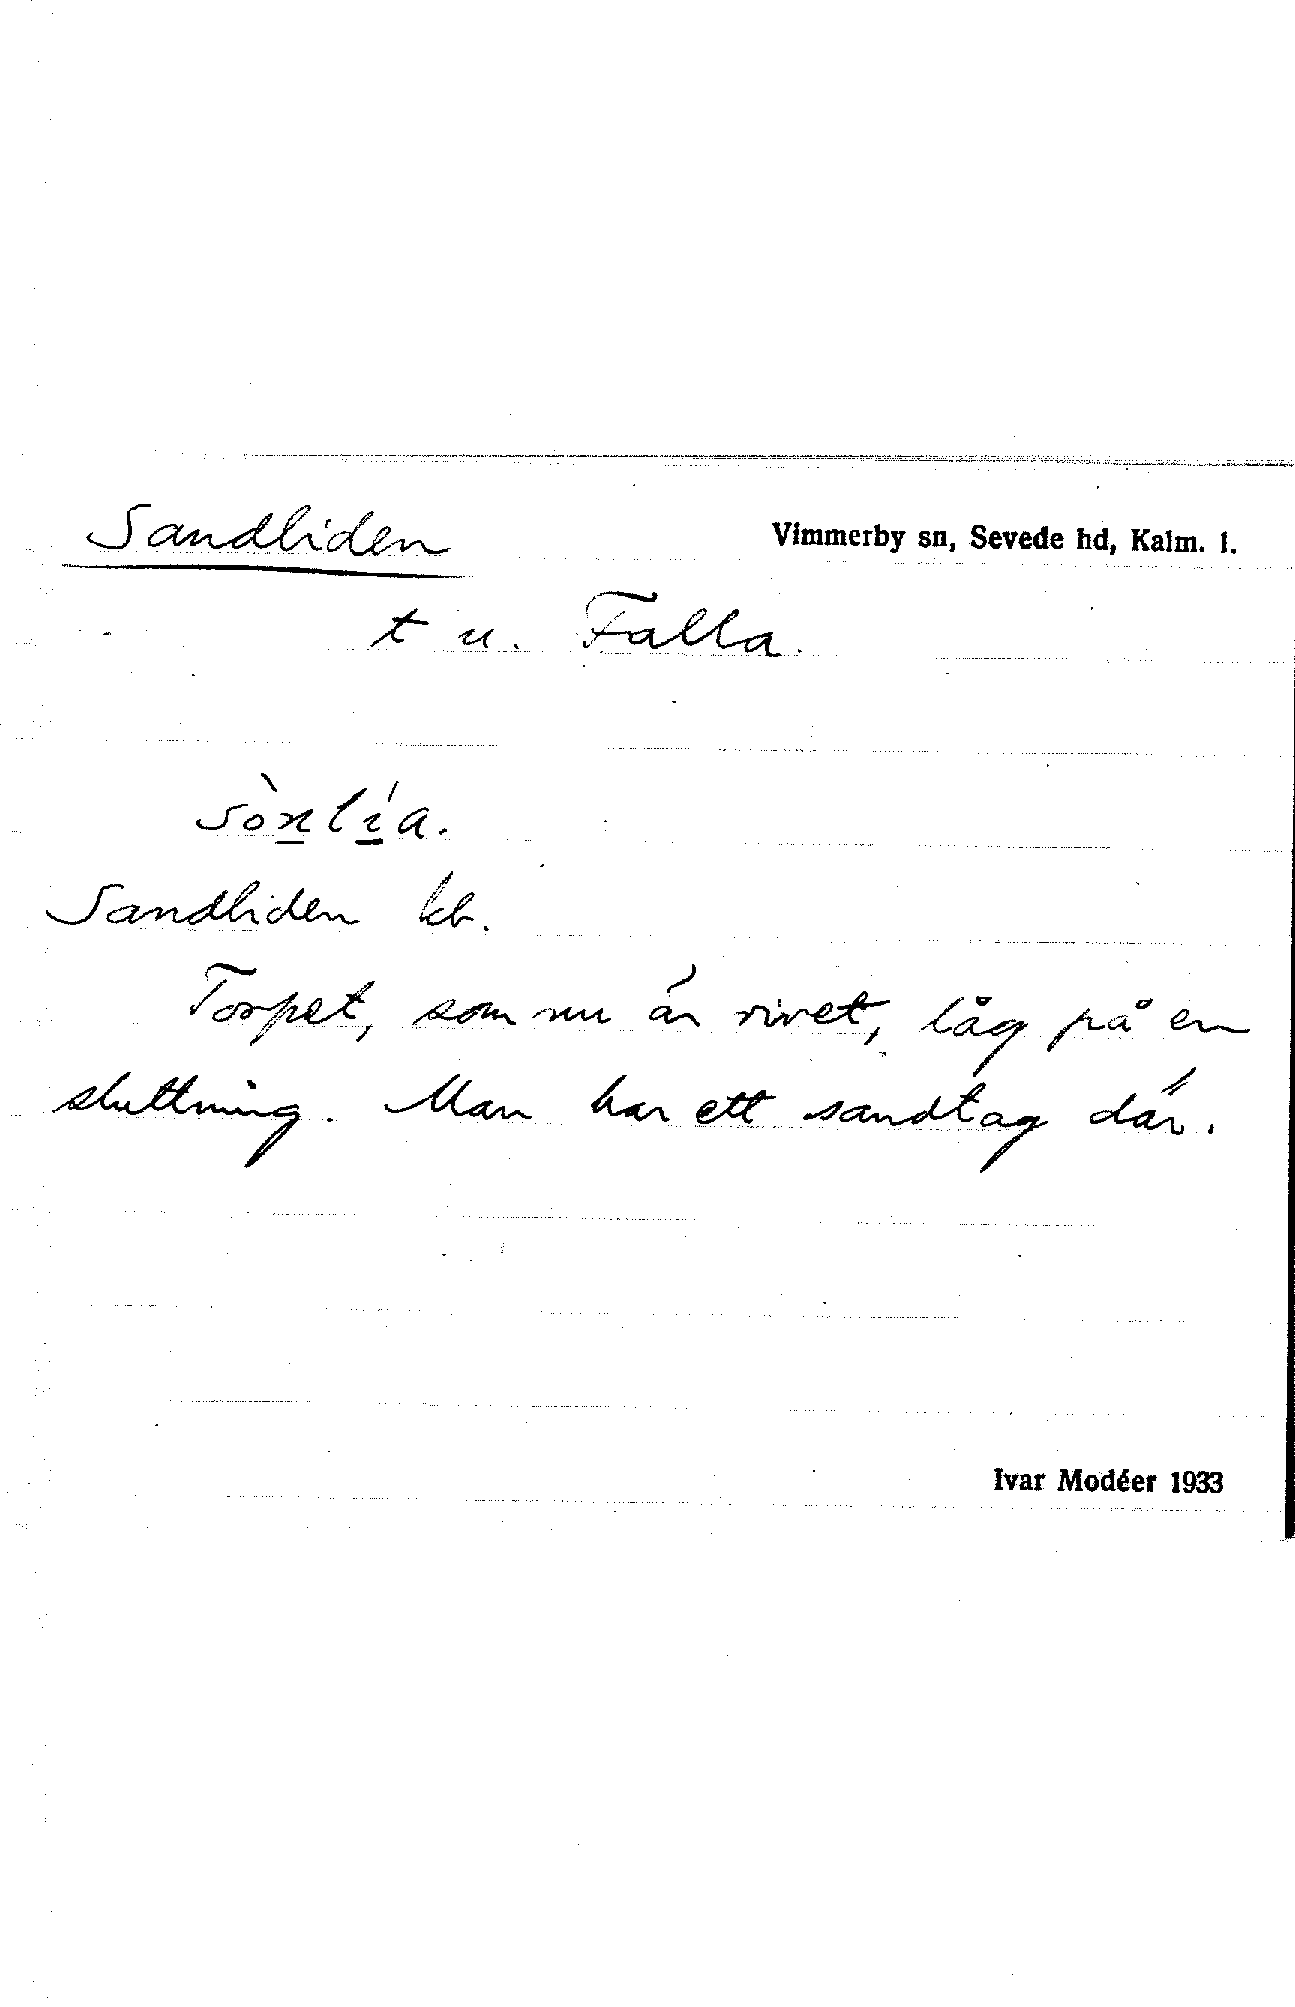 Sandliden
Vimmerby sn, Sevede hd, Kalm. l.
t u. Falla.
sò̱nlí̱a.
Sandliden kb.
Torpet, som nu är rivet, låg på en
sluttning. Man har ett sandtag där.
Ivar Modéer 1933